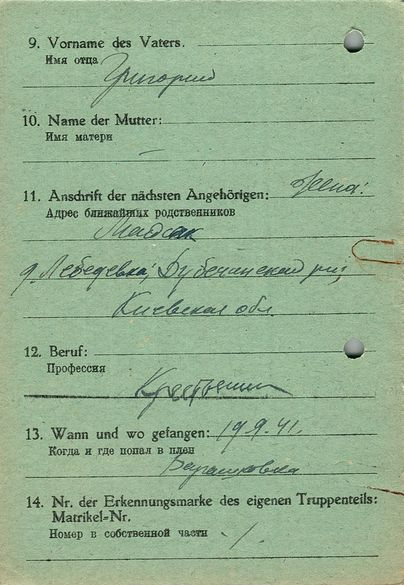 9. Vorname des Vaters.
Имя отца
Григорий
10. Name der Mutter:
Имя матери
—
11. Anschrift der nächsten Angehörigen: жена:
Адрес ближайших родственников
д. Лебедевка,
Киевская обл.
12. Beruf:
Профессия
Крестьянин
13. Wann und wo gefangen: 19.9.41.
Когда и где попал в плен
14. Nr. der Erkennungsmarke des eigenen Truppenteils:
Matrikel-Nr.
Номер в собственной части -/.